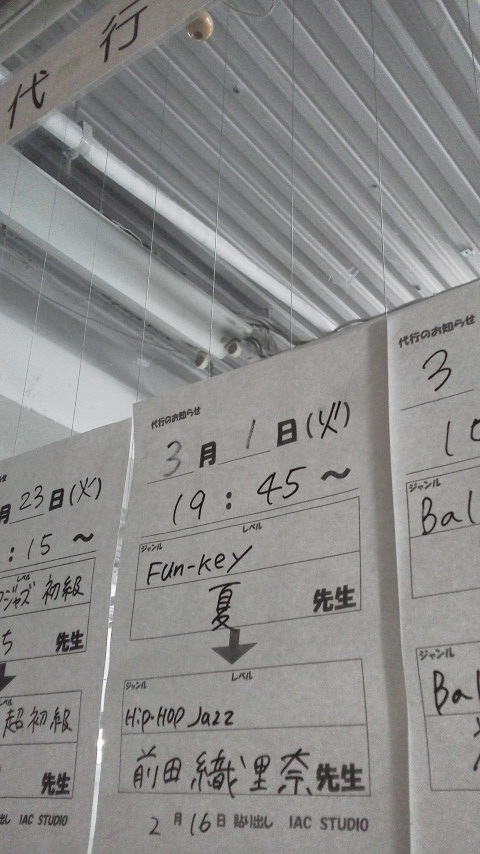 代行
月23日(火)
:15〜
レベル
ジャズ 初級
先生
超初級
先生
IAC STUDIO
代行のお知らせ
3月1日(火)
19:45〜
ジャンル レベル
Fun-key
夏 先生
ジャンル レベル
Hip-Hop Jazz
前田織里奈先生
2月16日貼り出し IAC STUDIO
代行のお知らせ
3
ジャンル
Bal
ジャンル
Bal